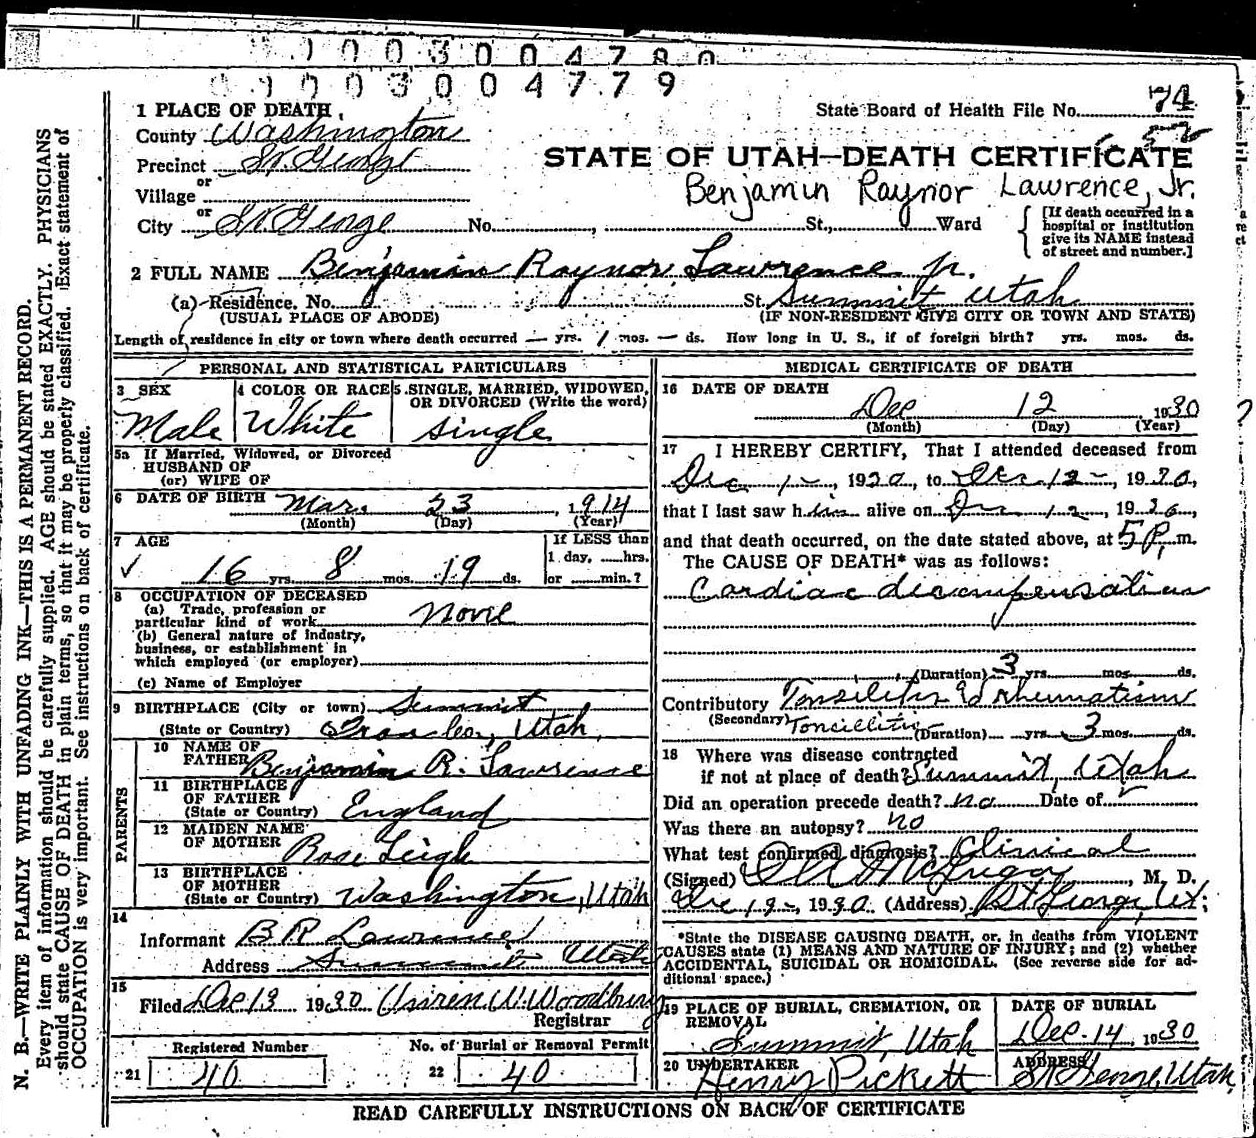 0 0 0 3 0 0 4 7 8 0
0 0 0 3 0 0 4 7 7 9
State Board of Health File No. 74
52
STATE OF UTAH—DEATH CERTIFICATE
Benjamin Raynor Lawrence, Jr.
1 PLACE OF DEATH
County Washington
Precinct St. George
or
Village
or
City St. George No. , St., Ward
[If death occurred in a hospital or institution give its NAME instead of street and number.]
2 FULL NAME Benjamin Raynor Lawrence jr.
(a) Residence. No. St. Summit Utah
(USUAL PLACE OF ABODE) (IF NON-RESIDENT GIVE CITY OR TOWN AND STATE)
Length of residence in city or town where death occurred — yrs. 1 mos. — ds. How long in U. S., if of foreign birth? yrs. mos. ds.
PERSONAL AND STATISTICAL PARTICULARS
3 SEX
Male
4 COLOR OR RACE
White
5. SINGLE, MARRIED, WIDOWED, OR DIVORCED (Write the word)
single
5a If Married, Widowed, or Divorced
HUSBAND OF
(or) WIFE OF
6 DATE OF BIRTH Mar. 23, 1914
(Month) (Day) (Year)
7 AGE
✓ 16 yrs. 8 mos. 19 ds.
If LESS than
1 day, hrs.
or min.?
8 OCCUPATION OF DECEASED
(a) Trade, profession or
particular kind of work None
(b) General nature of industry,
business, or establishment in
which employed (or employer)
(c) Name of Employer
9 BIRTHPLACE (City or town) Summit
(State or Country) Utah
PARENTS
10 NAME OF FATHER Benjamin R. Lawrence
11 BIRTHPLACE OF FATHER
(State or Country) England
12 MAIDEN NAME OF MOTHER Rose Leigh
13 BIRTHPLACE OF MOTHER
(State or Country) Washington, Utah
14
Informant B R Lawrence
Address Summit Utah
15
Filed Dec 13 1930 W. Woodbury
Registrar
Registered Number
21 40
No. of Burial or Removal Permit
22 40
MEDICAL CERTIFICATE OF DEATH
16 DATE OF DEATH
Dec 12, 1930
(Month) (Day) (Year)
17 I HEREBY CERTIFY, That I attended deceased from
Dec 1 —, 1930, to Dec 12 —, 1930,
that I last saw him alive on Dec 12, 1930,
and that death occurred, on the date stated above, at 5 P. m.
The CAUSE OF DEATH* was as follows:
Cardiac decompensation
(Duration) 3 yrs. mos. ds.
Contributory Tonsilitis & rheumatism
(Secondary) Toncillitis (Duration) yrs. 3 mos. ds.
18 Where was disease contracted
if not at place of death? Summit, Utah
Did an operation precede death? no Date of
Was there an autopsy? no
What test confirmed diagnosis? Clinical
(Signed) McGregor, M. D.
Dec 12 —, 1930. (Address) St George, Ut.
*State the DISEASE CAUSING DEATH, or, in deaths from VIOLENT
CAUSES state (1) MEANS AND NATURE OF INJURY; and (2) whether
ACCIDENTAL, SUICIDAL OR HOMICIDAL. (See reverse side for additional space.)
19 PLACE OF BURIAL, CREMATION, OR REMOVAL
Summit, Utah
DATE OF BURIAL
Dec. 14, 1930
20 UNDERTAKER
Henry Pickett
ADDRESS
St George, Utah
READ CAREFULLY INSTRUCTIONS ON BACK OF CERTIFICATE
N. B.—WRITE PLAINLY WITH UNFADING INK—THIS IS A PERMANENT RECORD.
Every item of information should be carefully supplied. AGE should be stated EXACTLY. PHYSICIANS
should state CAUSE OF DEATH in plain terms, so that it may be properly classified. Exact statement of
OCCUPATION is very important. See instructions on back of certificate.